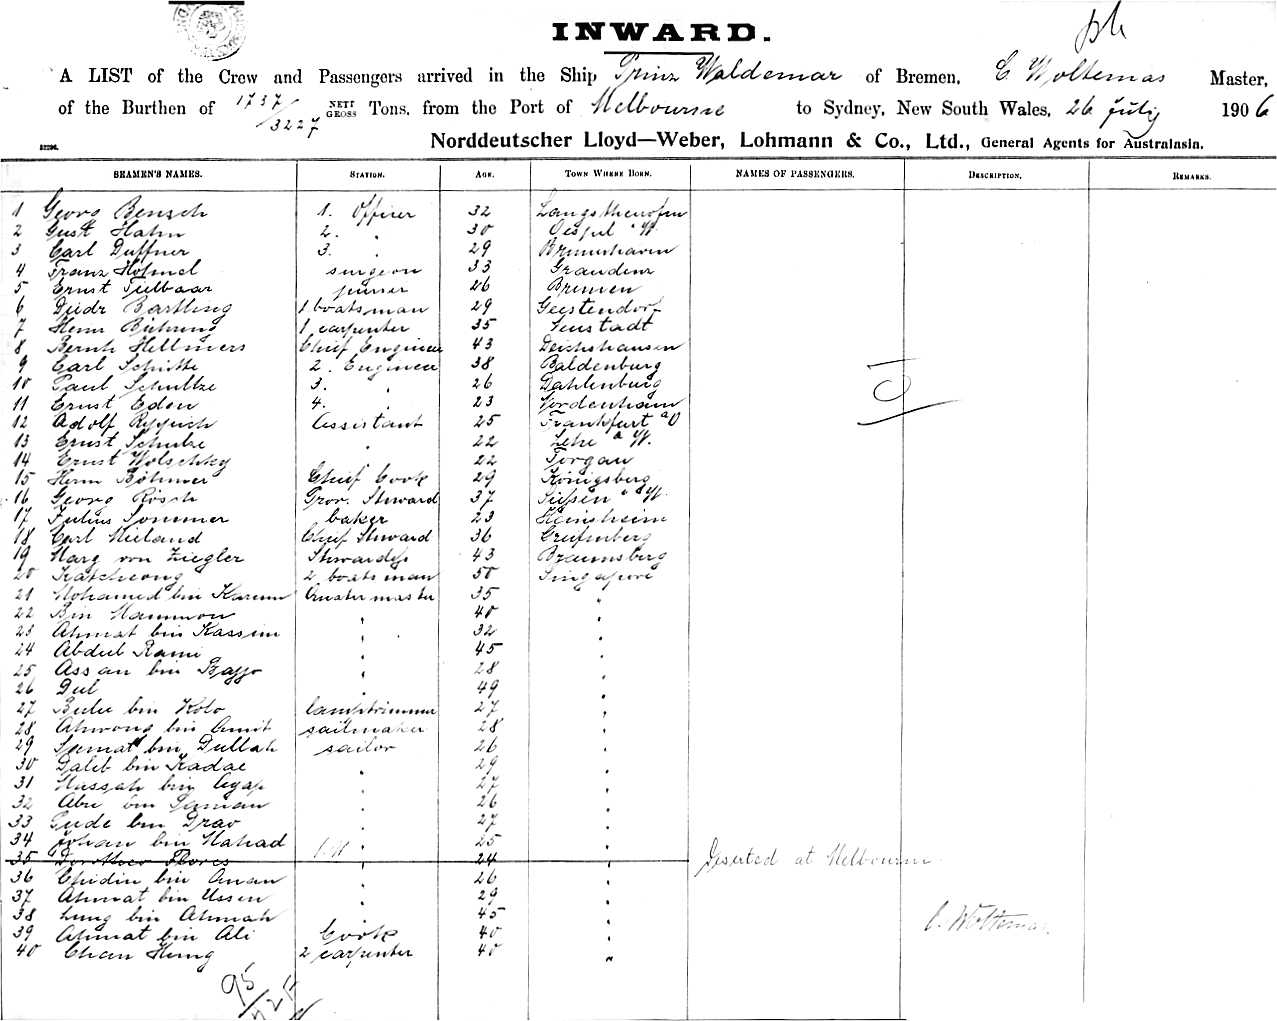 INWARD.
A LIST of the Crew and Passengers arrived in the Ship Prinz Waldemar of Bremen, C Woltemas Master,
of the Burthen of 1737/3227 NETT GROSS Tons, from the Port of Melbourne to Sydney, New South Wales, 26 July 1906
Norddeutscher Lloyd—Weber, Lohmann & Co., Ltd., General Agents for Australasia.
SEAMEN'S NAMES. STATION. AGE. TOWN WHERE BORN. NAMES OF PASSENGERS. DESCRIPTION. REMARKS.
1 Georg Bensch 1. Officer 32
2 Gust Hahn 2. " 30
3 Carl Duffner 3. " 29 Bremerhaven
4 Franz surgeon 33 Graudenz
5 Ernst purser 26 Bremen
6 Diedr Bartling 1 boatsman 29 Geestendorf
7 Herm Bühring 1 carpenter 35 Neustadt
8 Bernh Hellmers Chief Engineer 43 Deichshausen
9 Carl Schütte 2. Engineer 38 Baldenburg
10 Paul Schultze 3. " 26 Dahlenburg
11 Ernst Eden 4. " 23 Nordenham
12 Adolf Assistant 25 Frankfurt a/O
13 Ernst Schulze " 22 Lehe a W.
14 Ernst Wolschky 22 Torgau
15 Herm Böhmer Chief Cook 29 Königsberg
16 Georg Rösch Prov. Steward 37
17 Julius Sommer baker 23 Heinsheim
18 Carl Wieland Chief Steward 36 Greifenberg
19 Marg von Ziegler Stewardess 43 Braunsberg
20 Katcheong 2 boatsman 50 Singapore
21 Mohamed bin Karim Quatermaster 35 "
22 Bin Mammon " 40 "
23 Ahmat bin Kassim " 32 "
24 Abdul Rami " 45 "
25 Assan bin " 28 "
26 Dul " 49 "
27 Bulu bin Kolo lamptrimmer 27 "
28 Ahwong bin Amit sailmaker 28 "
29 Samat bin Dullah sailor 26 "
30 Daleb bin Kadae " 29 "
31 Hassah bin Ayap " 27 "
32 Abu bin Saman " 26 "
33 Gude bin Drao " 27 "
34 Johan bin Mahad " 25 "
35 Dorotheo Flores " 24 " Deserted at Melbourne
36 Chidin bin Anan " 26 "
37 Ahmat bin Ussen " 29 "
38 Lung bin Ahmah " 45 "
39 Ahmat bin Ali Cook 40 "
40 Chan Hung 2 carpenter 40 "
C. Woltemas
95